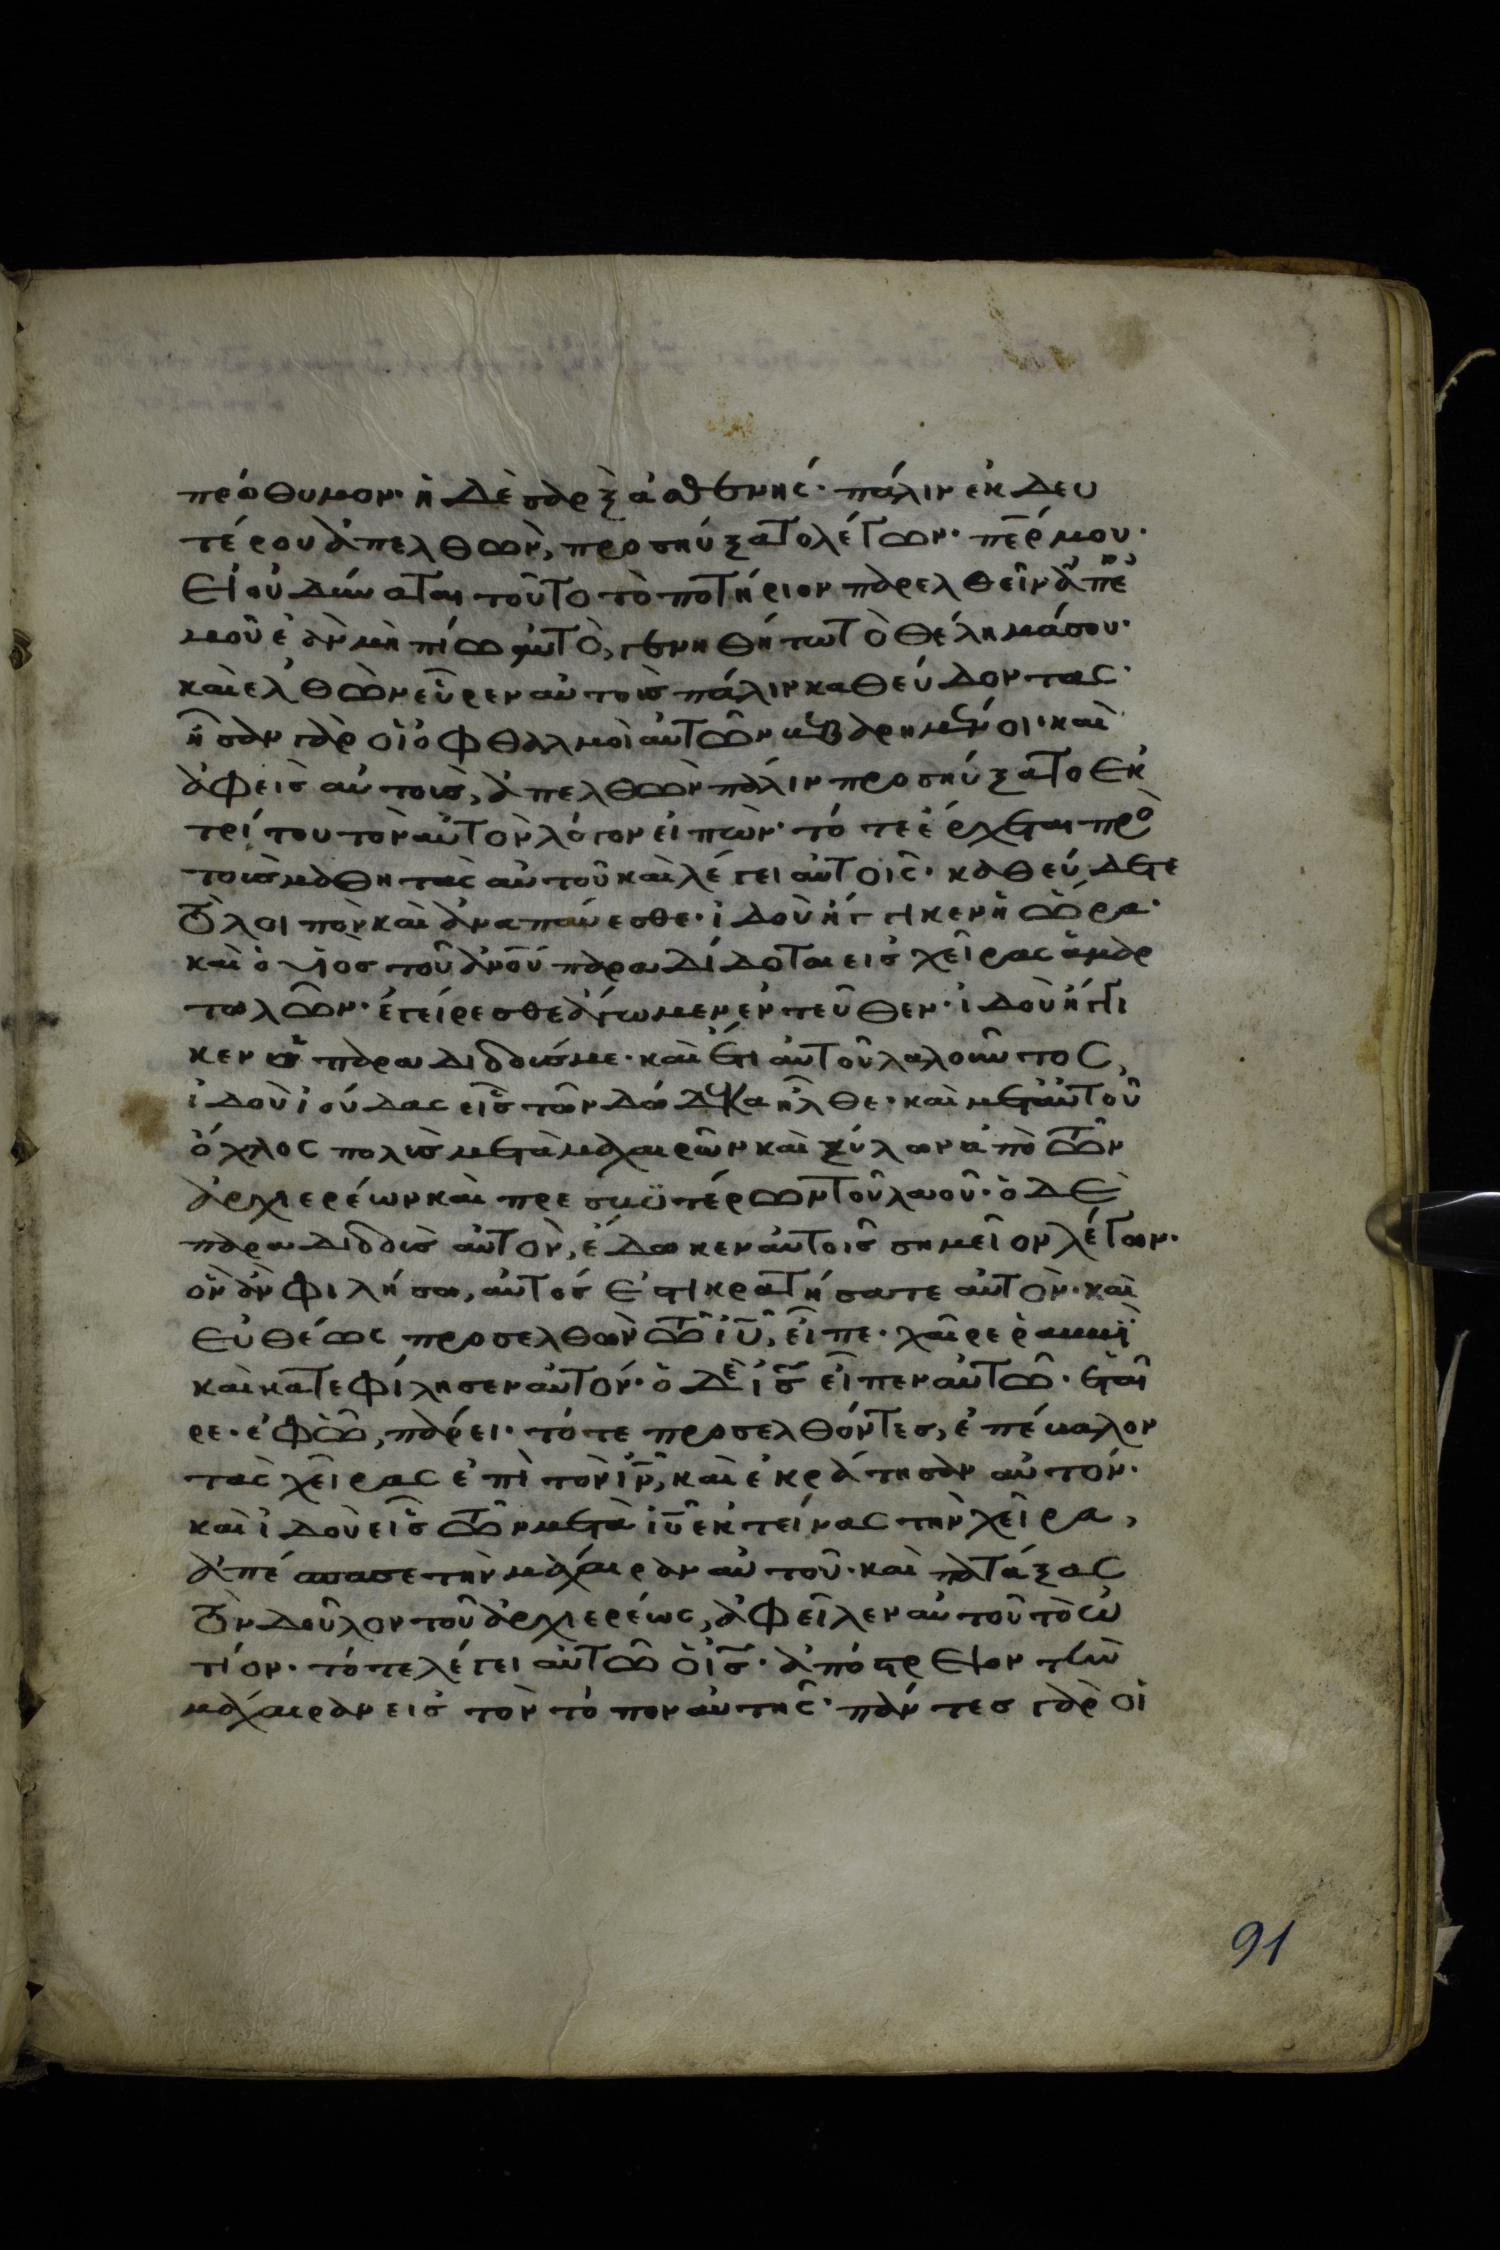 πρόθυμον· ἡ δὲ σὰρξ ἀσθενής· πάλιν ἐκ δευ
τέρου ἀπελθὼν, προσηύξατο λέγων· περ μου·
εἰ οὐ δύναται τοῦτο τὸ ποτήριον παρελθεῖν ἀπ' ἐ
μοῦ ἐὰν μὴ πίω αὐτὸ, γενηθήτω τὸ θέλημά σου·
καὶ ἐλθὼν εὗρεν αὐτοὺς πάλιν καθεύδοντας·
ἦσαν γὰρ οἱ ὀφθαλμοὶ αὐτῶν βεβαρημένοι· καὶ
ἀφεὶς αὐτοὺς, ἀπελθὼν πάλιν προσηύξατο ἐκ
τρίτου τὸν αὐτὸν λόγον εἰπών· τότε ἔρχεται πρὸ
τοὺς μαθητὰς αὐτοῦ καὶ λέγει αὐτοῖς· καθεύδετε
τὸ λοιπὸν καὶ ἀναπαύεσθε· ἰδοὺ ἤγγικεν ἡ ὥρα·
καὶ ὁ υἱὸς τοῦ ἀνου παραδίδοται εἰς χεῖρας ἁμαρ
τωλῶν· ἐγείρεσθε ἄγωμεν ἐντεῦθεν· ἰδοὺ ἤγγι
κεν ὁ παραδιδούς με· καὶ ἔτι αὐτοῦ λαλοῦντος,
ἰδοὺ ἰούδας εἷς τῶν δώδεκα ἦλθε· καὶ μετ' αὐτοῦ
ὄχλος πολὺς μετὰ μαχαιρῶν καὶ ξύλων ἀπὸ τῶν
ἀρχιερέων καὶ πρεσβϋτέρων τοῦ λαοῦ· ὁ δὲ
παραδιδοὺς αὐτὸν, ἔδωκεν αὐτοῖς σημεῖον λέγων·
ὃν ἂν φιλήσω, αὐτός ἐστι κρατήσατε αὐτὸν· καὶ
εὐθέως προσελθὼν τῶ ἰυ, εἶπε· χαῖρε ῥαββὶ
καὶ κατεφίλησεν αὐτόν· ὁ δὲ ις εἶπεν αὐτῶ· ἑταῖ
ρε· ἐφ' ὧ, πάρει· τότε προσελθόντες, ἐπέβαλον
τὰς χεῖρας ἐπὶ τὸν ιν, καὶ ἐκράτησαν αὐτόν·
καὶ ἰδοὺ εἷς τῶν μετὰ ἰυ ἐκτείνας τὴν χεῖρα,
ἀπέσπασε τὴν μάχαιραν αὐτοῦ· καὶ πατάξας
τὸν δοῦλον τοῦ ἀρχιερέως, ἀφεῖλεν αὐτοῦ τὸ ὠ
τίον· τότε λέγει αὐτῶ ὁ ις· ἀπόστρεψον τὴν
μάχαιραν εἰς τὸν τόπον αὐτῆς· πάντες γὰρ οἱ
91